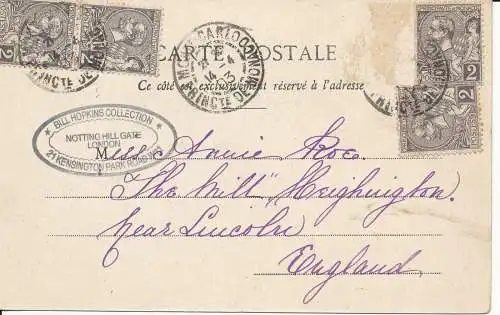 CARTE POSTALE
Ce côté est exclusivement réservé à l'adresse
MONTE CARLO
14
PRINCTE DE
2
2
2
BILL HOPKINS COLLECTION
NOTTING HILL GATE
LONDON
21 KENSINGTON PARK ROAD W11
Miss Annie Roe.
The Mill, Heighington.
near Lincoln
England.